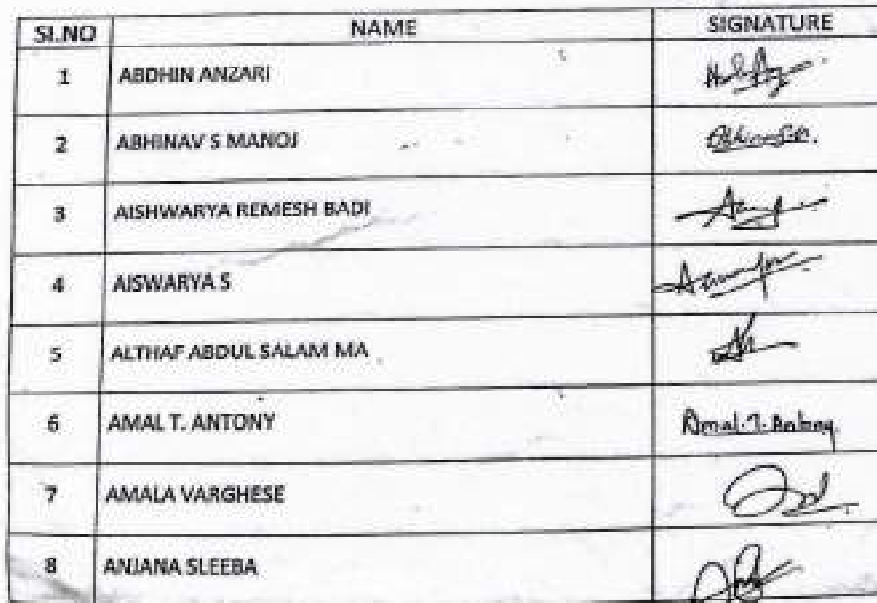 SI.NO NAME SIGNATURE
1 ABDHIN ANZARI
2 ABHINAV S MANOJ
3 AISHWARYA REMESH BADI
4 AISWARYA S
5 ALTHAF ABDUL SALAM MA
6 AMAL T. ANTONY Amal.T.Antony
7 AMALA VARGHESE
8 ANJANA SLEEBA